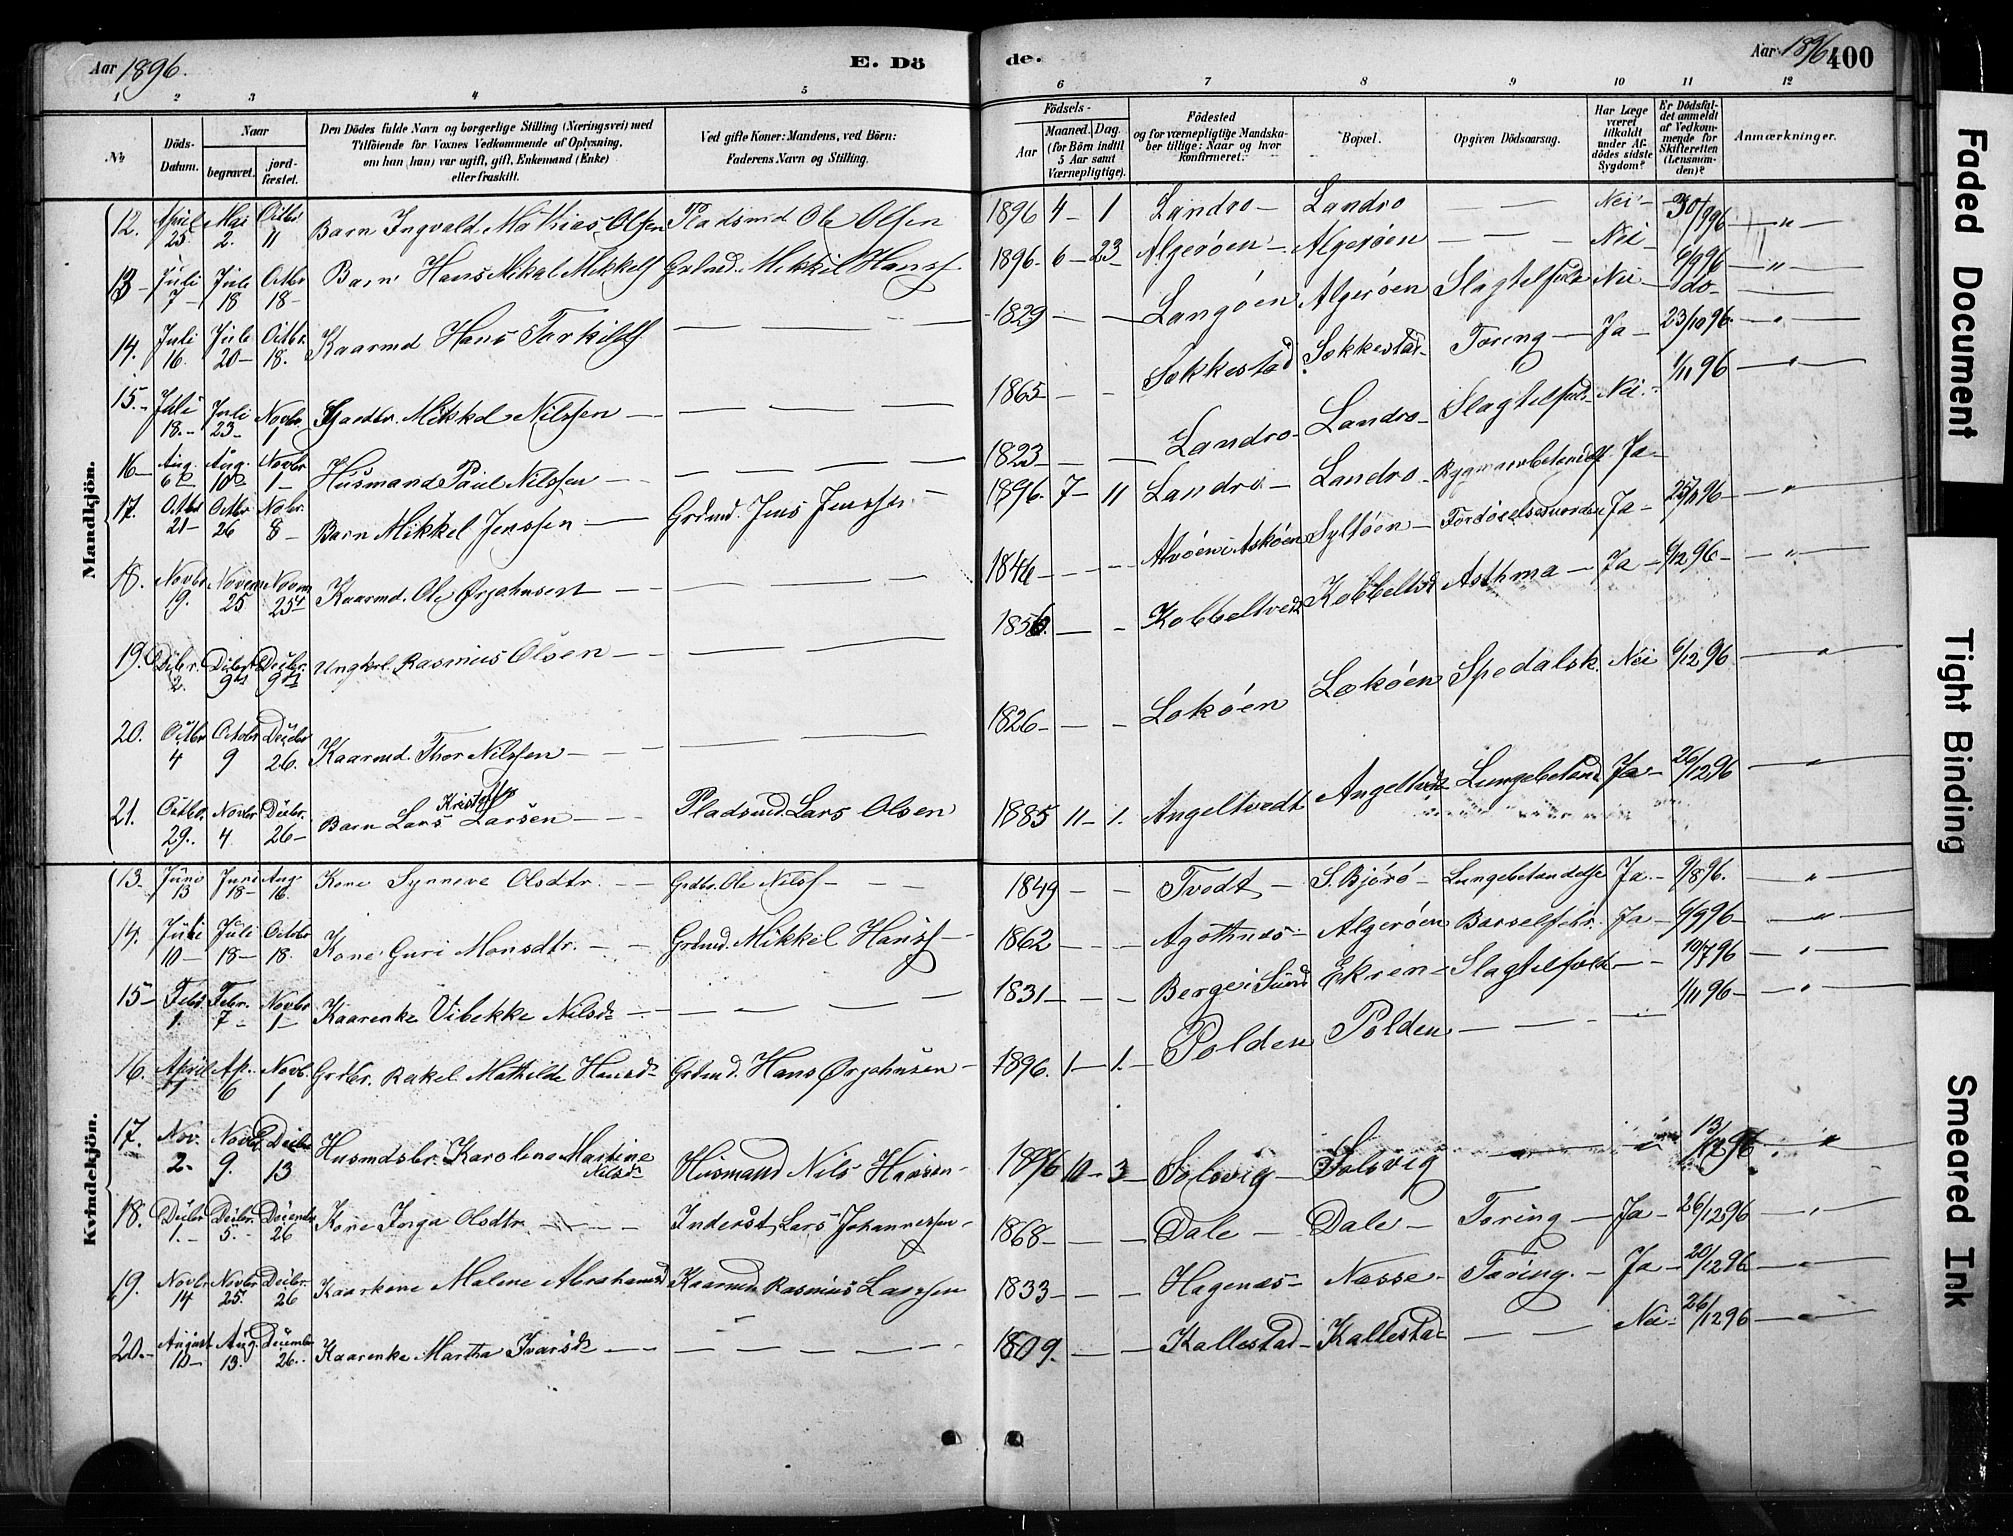 Aar 1896.
E. Dö
de.
Aar 1896
400
1 2 3 4 5 6 7 8 9 10 11 12
No
Döds-Datum.
Naar
begravet.
jord-fæstet.
Den Dödes fulde Navn og borgerlige Stilling (Næringsvei) med
Tilföiende for Voxnes Vedkommende af Oplysning,
om han (hun) var ugift, gift, Enkemand (Enke)
eller fraskilt.
Ved gifte Koner: Mandens, ved Börn:
Faderens Navn og Stilling.
Födsels-
Aar
Maaned. Dag.
(for Börn indtil
5 Aar samt
Værnepligtige).
Födested
og for værnepligtige Mandska-
ber tillige: Naar og hvor
konfirmeret.
Bopæl.
Opgiven Dödsaarsag.
Har Læge
været
tilkaldt
under Af-
dödes sidste
Sygdom?
Er Dödsfal-
det anmeldt
af Vedkom-
mende for
Skifteretten
(Lensman-
den)?
Anmærkninger.
Mandkjön.
12. April 25 Mai 2. Octbr 11 Barn Ingvald Mathias Olsen Pladsmd Ole Olsen 1896 4 - 1 Landro - Landro - - Nei - 30/9 96 - " -
13 - Juli 7 - Juli 18 Octbr 18 - Barn Hans Mikal Mikkelsf Grdmd. Mikkel Hansf 1896 - 6 - 23 - Algerøen - Algerøen - - Nei - 6/9 96 - " -
14. Juli 16. Juli 20 - Octbr. 18. Kaarmd Hans Torkildsf - - - 1829 - - Langøen Algerøen Slagtilfælde Nei - do -
15. - Juli 18. - Juli 23 - Novbr. 1 Gaardbr. Mikkel Nilssen - - - - 1865 - - Søkkestad Søkkestad - Tæring - Ja - 23/10 96 - " -
16 - Aug. 6 Aug. 10 Novbr 1 - Husmand Paul Nilssen - - - - 1823 - - Landro - Landro - Slagtilfæld. Nei - 1/11 96 - " -
17. Octbr 21 - Octbr 26 Nobr. 8 - Barn Mikkel Jenssen - Grdmd. Jens Jenssen - 1896. 7 - 11 Landro - Landro - Ja -
18. Novbr 19. Novem 25 Novem 25 Kaarmd. Ole Ørjahnsen - - - - 1846 - - - Askøen Syltøen - Ja - 25/11 96 - " -
19. Decbr. 2. Decbr 9 Decbr. 9 Ungkrl. Rasmus Olsen - - - - 1856. - - Kobbeltvedt Kobbeltvdt Asthma - Ja - 6/12 96 - - " -
20. Octbr 4 Octobr 9 Decbr 26. Kaarmd. Thor Nilssen - - - - 1826 - - - Lokøen Lokøen Spedalsk. Nei 6/12 96 - " -
21. Octbr. 29. Novbr 4 Decbr. 26 - Barn Lars Kristoffer Larsen - - - Pladsmd. Lars Olsen 1885 11 - 1. Angeltvedt Angeltvedt Lungebetænd. Ja - 26/12 96 - " -
Kvindekjön.
13 - Juni 13 Juni 18 - Aug. 16. Kone Synneve Olsdtr. - - Grdbr. Ole Nilsf - - - 1849 - - Tvedt - S. Bjørø - Lungebetændelse Ja - 9/8 96. - " -
14. Juli 10 - Juli 18 - Octbr 18. Kone Guri Monsdtr. - - Grdmd. Mikkel Hansf - 1862 - - - Agothnes - Algerøen Barselfebr. Ja - 6/9 96 - - " -
15 - Febr. 1. Febr. 7 - Novbr 1 - Kaarenke Vibekke Nilsd. - - - - 1831 - - - Berge i Sund Ekren - Slagtilfæld - - 19/7 96 - " -
16. April 1 Ap. 6 Novb. 1 Grdbr. Rakel Mathilde Hansd - Grdmd. Hans Ørjahnsen - 1896. 1 - 1. - Polden Polden - - - 1/11 96 - - " -
17. Nov. 2 - Novbr. 9. Decbr 13 Husmdsbr. Karoline Martine Nilsd - Husmand Nils Hansen - 1896 10 - 3 - Solsvig - Solsvig - - " 13/12 96 - "
18. Decbr 1. - Decbr. 5. - Decembr 26 Kone Inga Olsdtr. - - - Inderst Lars Johannessen - 1868 - - - Dale - Dale - Tæring - Ja - 26/12 96 - " -
19. Novbr. 14 Novbr 25. Decbr. 26 Kaarkone Malene Abrahamsd Kaarmd. Rasmus Larssen 1833 - - - Hagenæs - Næsse - Tæring. - Ja - 20/12 96 - " -
20. - August 10 - Aug. 13. Decembr 26. Kaarenke Martha Ivarsd. - - - - - 1809. - - Kallestad - Kallestad - - - Nei - 26/12 96 - " -
Faded Document
Tight Binding
Smeared Ink